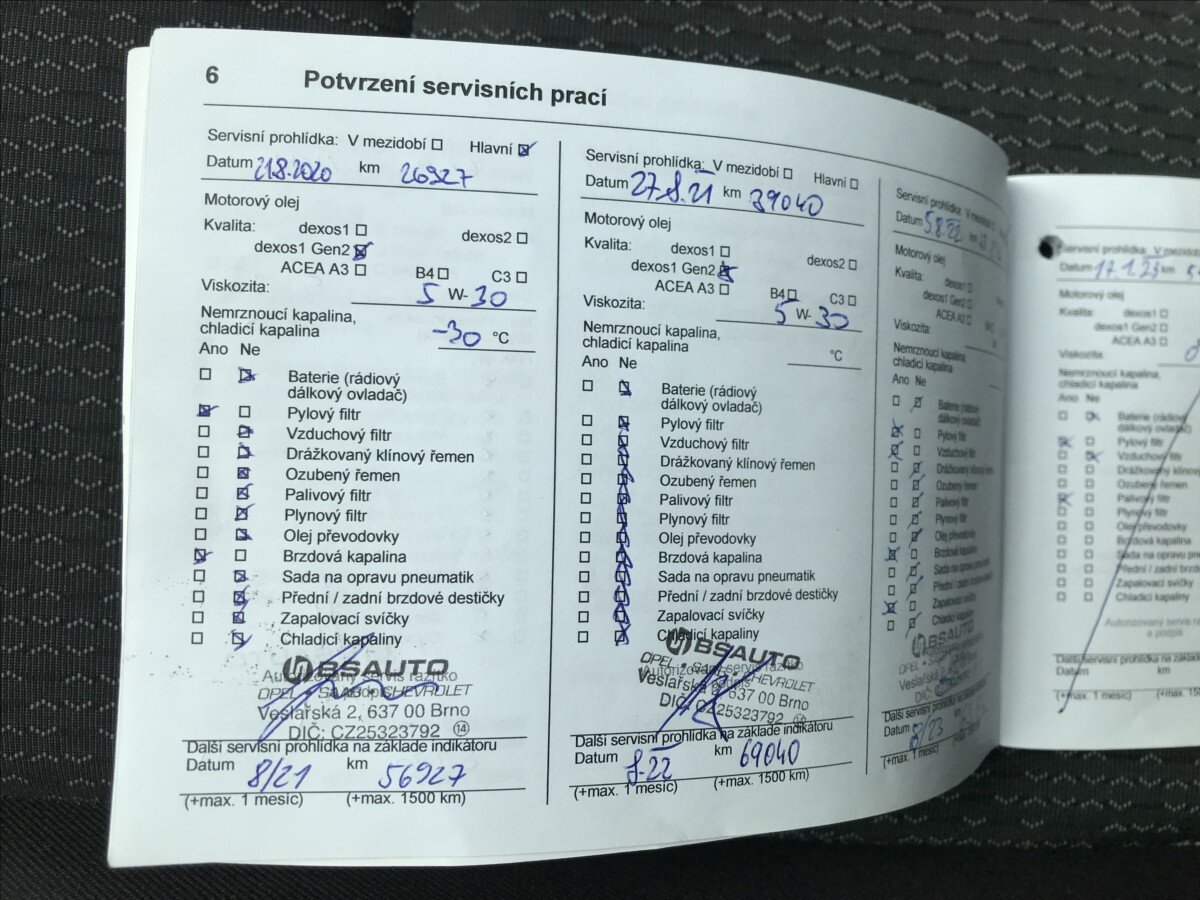 6 Potvrzení servisních prací
Servisní prohlídka: V mezidobí Hlavní
Datum 21.8.2020 km 26927
Motorový olej
Kvalita: dexos1 dexos2
dexos1 Gen2
ACEA A3 B4 C3
Viskozita: 5 W- 30
Nemrznoucí kapalina,
chladicí kapalina -30 °C
Ano Ne
Baterie (rádiový
dálkový ovladač)
Pylový filtr
Vzduchový filtr
Drážkovaný klínový řemen
Ozubený řemen
Palivový filtr
Plynový filtr
Olej převodovky
Brzdová kapalina
Sada na opravu pneumatik
Přední / zadní brzdové destičky
Zapalovací svíčky
Chladicí kapaliny
BSAUTO
Autorizovaný servis razítko
OPEL • SAAB CHEVROLET
Veslařská 2, 637 00 Brno
DIČ: CZ25323792 14
Další servisní prohlídka na základe indikátoru
Datum 8/21 km 56927
(+max. 1 mesíc) (+max. 1500 km)
Servisní prohlídka: V mezidobí Hlavní
Datum 27.8.21 km 39040
Motorový olej
Kvalita: dexos1 dexos2
dexos1 Gen2
ACEA A3 B4 C3
Viskozita: 5 W- 30
Nemrznoucí kapalina,
chladicí kapalina °C
Ano Ne
Baterie (rádiový
dálkový ovladač)
Pylový filtr
Vzduchový filtr
Drážkovaný klínový řemen
Ozubený řemen
Palivový filtr
Plynový filtr
Olej převodovky
Brzdová kapalina
Sada na opravu pneumatik
Přední / zadní brzdové destičky
Zapalovací svíčky
Chladicí kapaliny
BSAUTO
Autorizovaný servis razítko
OPEL • SAAB CHEVROLET
Veslařská 2, 637 00 Brno
DIČ: CZ25323792 14
Další servisní prohlídka na základe indikátoru
Datum 8-22 km 69040
(+max. 1 mesíc) (+max. 1500 km)
Servisní prohlídka: V mezidobí
Datum 5.8.22 km
Motorový olej
Kvalita: dexos1
dexos1 Gen2
ACEA A3
Viskozita:
Nemrznoucí kapalina,
chladicí kapalina
Ano Ne
Baterie (rádiový
dálkový ovladač)
Pylový filtr
Vzduchový filtr
Drážkovaný klínový řemen
Ozubený řemen
Palivový filtr
Plynový filtr
Olej převodovky
Brzdová kapalina
Sada na opravu pneumatik
Přední / zadní brzdové
Zapalovací svíčky
Chladicí kapaliny
BSAUTO
OPEL
Veslařská 2,
DIČ:
Další servisní prohlídka na
Datum 8/23 km
(+max. 1 mesíc) (+max.
Servisní prohlídka: V mezidobí
Datum 17.1.23 km
Motorový olej
Kvalita: dexos1
dexos1 Gen2
ACEA A3
Viskozita:
Nemrznoucí kapalina,
chladicí kapalina
Ano Ne
Baterie (rádiový
dálkový ovladač)
Pylový filtr
Vzduchový filtr
Drážkovaný klínový
Ozubený řemen
Palivový filtr
Plynový filtr
Olej převodovky
Brzdová kapalina
Sada na opravu pneu
Přední / zadní brzdové
Zapalovací svíčky
Chladicí kapaliny
Autorizovaný servis
a podpis
Další servisní prohlídka na základe
Datum km
(+max. 1 mesíc) (+max. 1500